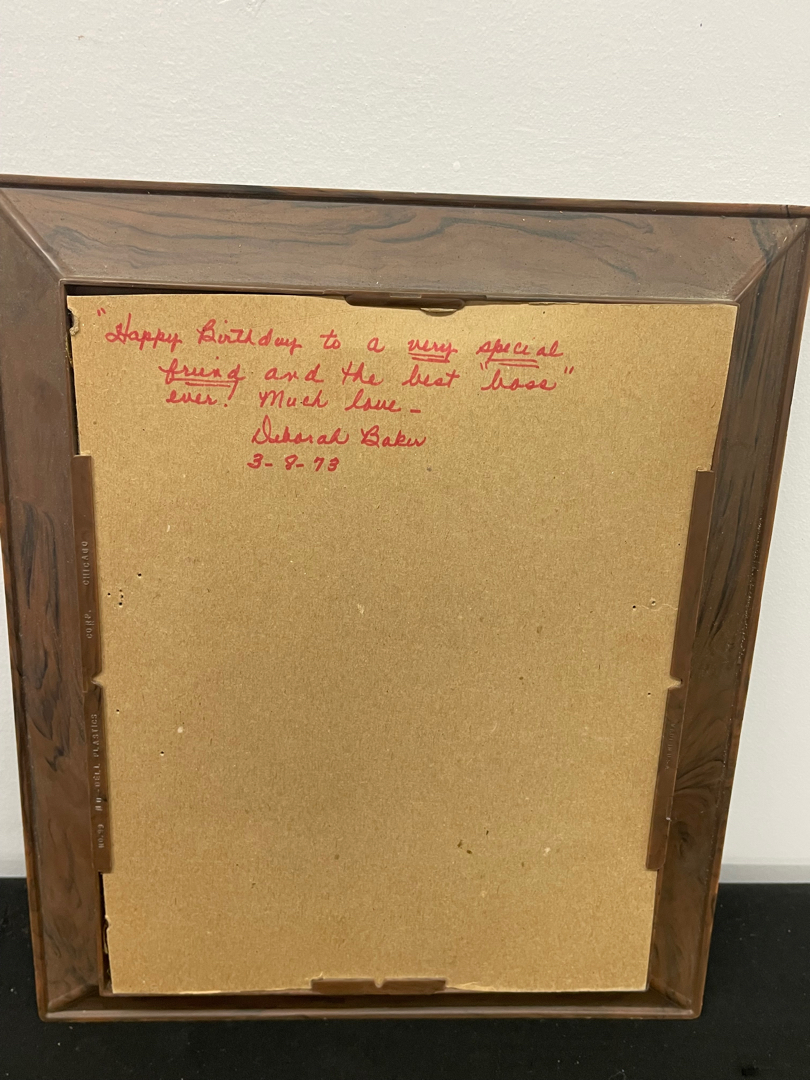 "Happy Birthday to a very special
friend and the best "boss"
ever! Much love -
Deborah Baker
3-8-73
CORP. CHICAGO
NO. 93 NU-DELL PLASTICS